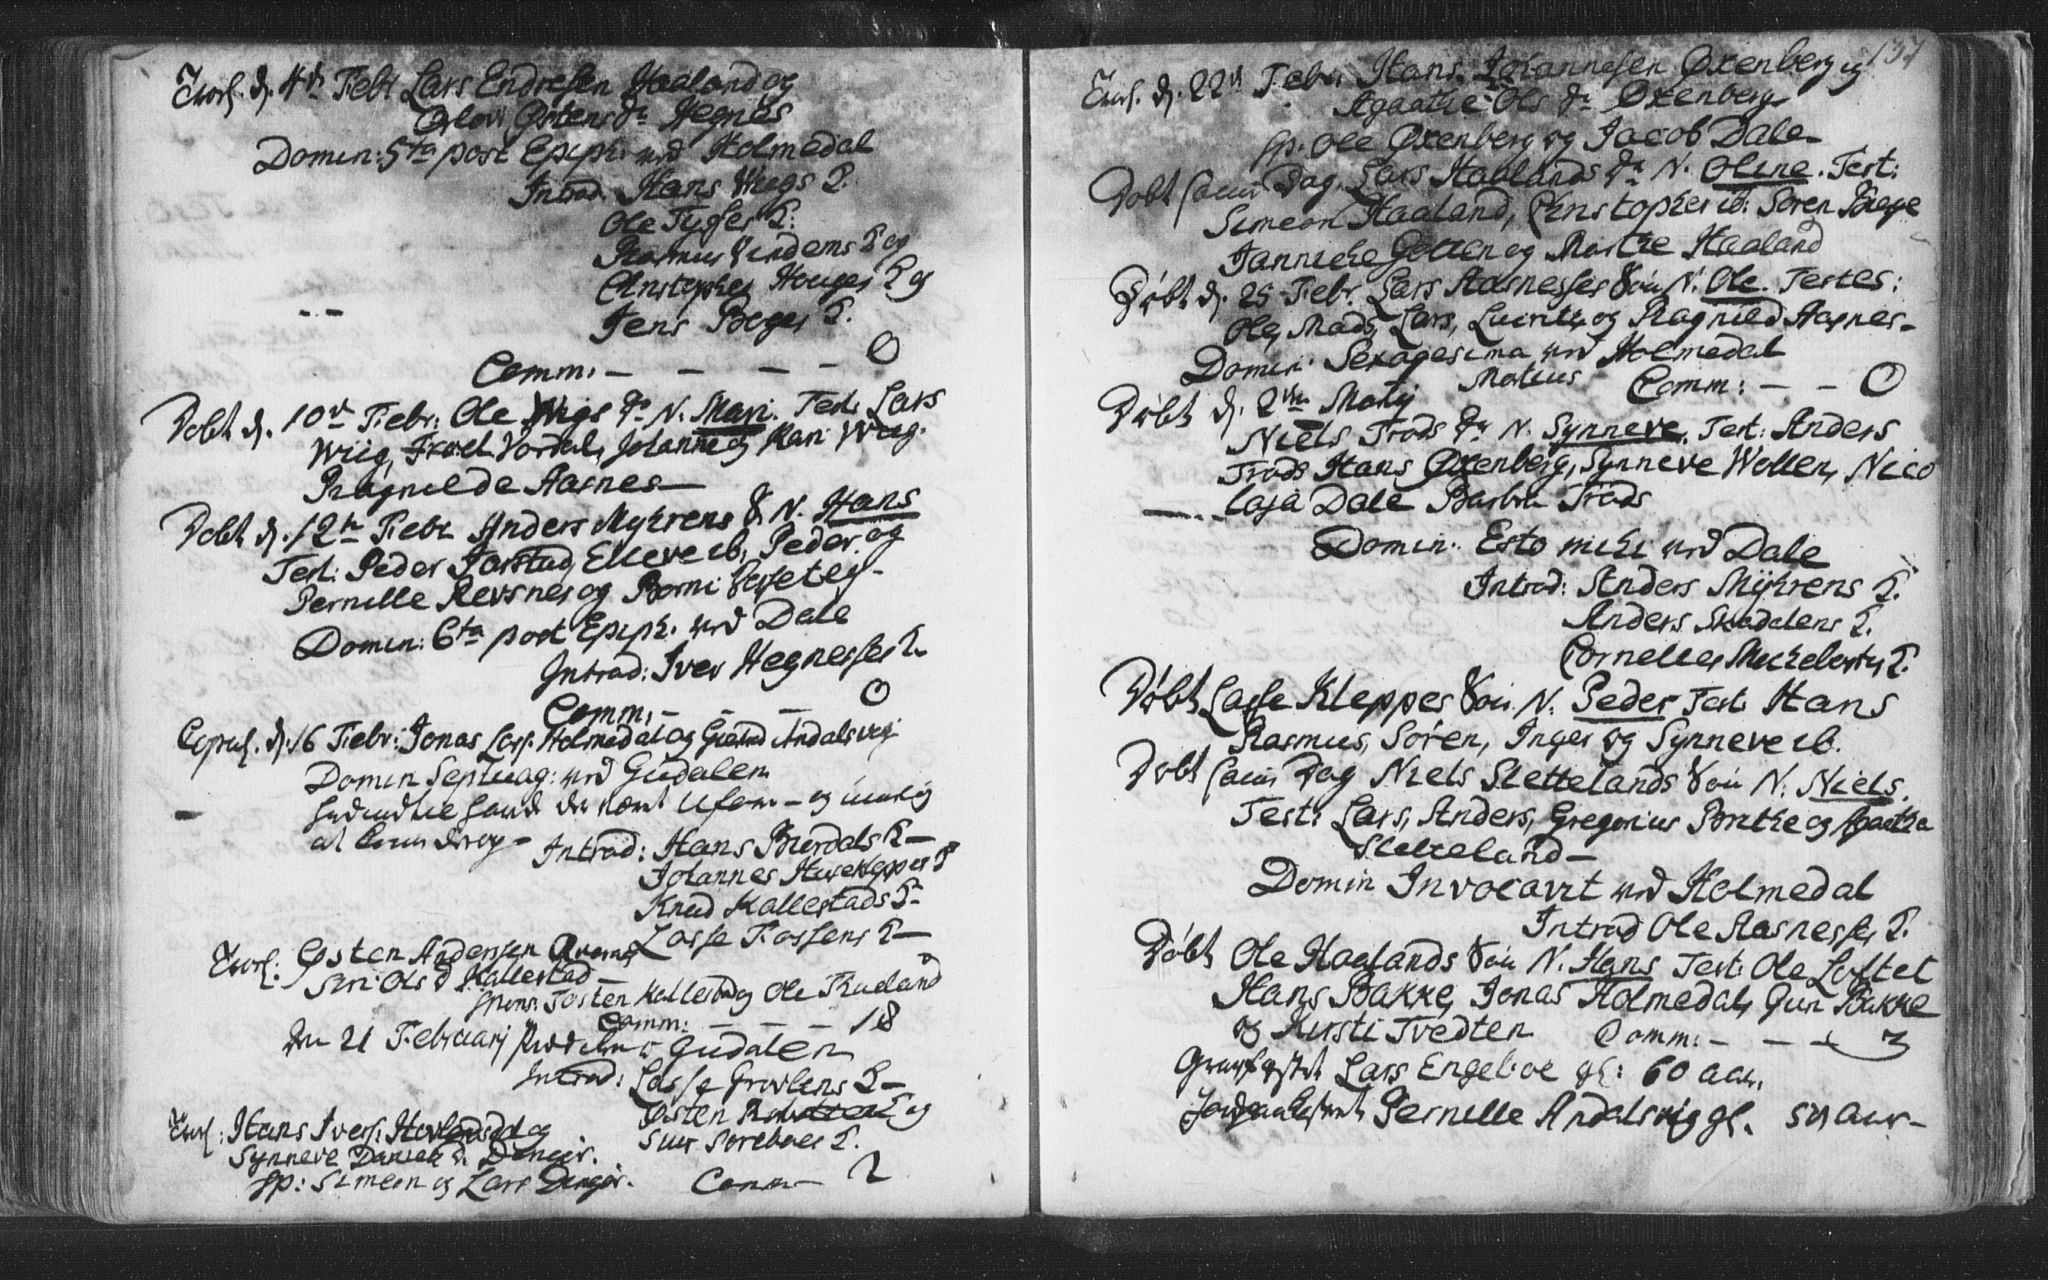 d. 4de Febr Lars Endresen Haaland og
Østens dr Hegnæs
Domin: 5ta post Epiph: ved Holmedal
Introd. Hans Wiigs K.
Ole Tysses K.
Rasmus Vindems K og
Christopher Houges K og
Jens Boges K.
Comm: — — — — 0
Døbt d. 10de Febr: Ole Wigs dr N. Mari. Test: Lars
Wiig, Vardal, Johanne og Mari Wiig.
Ragnilde Aasnes —
Døbt d. 12te Febr Anders Myhrens S N. Hans
Test: Peder Jarstad, Elleve ib, Peder og
Pernille Revsnes og Borni
Domin: 6ta post Epiph. ved Dale
Introd: Iver Hegnesses K.
Comm: — — — 0
Copul. d. 16 Febr: Jonas Lars. Holmedal og Andalsvig
Domin Septuag: ved Gudalen
Introd: Hans Birdals K —
Johannes Huseklepper K
Knud Kallestads K —
Lasse Fossens K —
Trol: Østen Andersen
Siri Ols d. Kallestad —
spons: Tosten Kallestad og Ole
Comm: — — — 18
den 21 Februarij Gudalen
Introd: Lasse Grovlens K —
Østen K og
Hans Ivers: Hovland og
Siur Sørebøes K.
Synneve Daniels d. Dingør.
sp: Simeon og Lars Dingør.
Comm — 2
137
d. 22de Febr: Hans Johannesen Øxenberg og
Agaathe Ols dr Øxenberg
sp. Ole Øxenberg og Jacob Dale
Døbt samme Dag, Lars Haalands dr N. Oline. Test:
Simeon Haaland, Christopher ib: Søren
Jannicke og Marthe Haaland
Døbt d. 25 Febr. Lars Aasnesses Søn N. Ole. Testes:
Ole, Mads, Lars, og Ragnild Aasnes —
Domin: Sexagesima ved Holmedal
Comm: — — 0
Døbt d. 2den Martij Martius
Niels Trads dr N. Synneve. Test: Anders
Trads Hans Øxenberg, Synneve Wollen, Nico
laja Dale Barbra Trads
Domin: Esto mihi ved Dale
Introd: Anders Myhrens K.
Anders Skadalens K.
Cornelles K.
Døbt Lasse Kleppes Søn N. Peder Test. Hans
Rasmus, Søren, Inger og Synneve ib.
Døbt samme Dag Niels Slettelands Søn N. Niels.
Test: Lars, Anders, Gregorius Brithe og Agaatha
Sletteland —
Domin Invocavit ved Holmedal
Introd Ole Aasnesses K.
Døbt Ole Haalands Søn N. Hans Test: Ole Loftet
Hans Bakke, Jonas Holmedal, Gun Bakke
og Kirsti Tvedten Comm: — — — 3
Gravfæstet Lars Engeboe gl: 60 aar.
Pernille Andalsvig gl.